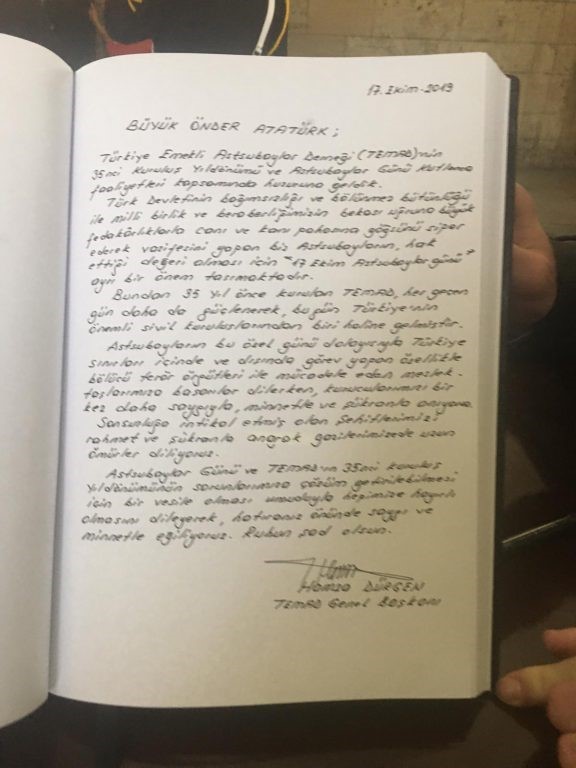 17. Ekim. 2019
BÜYÜK ÖNDER ATATÜRK;
Türkiye Emekli Astsubaylar Derneği (TEMAD)'nin
35nci Kuruluş Yıldönümü ve Astsubaylar Günü Kutlama
faaliyetleri kapsamında huzuruna geldik.
Türk Devletinin bağımsızlığı ve bölünmez bütünlüğü
ile milli birlik ve beraberliğimizin bekası uğruna büyük
fedakârlıklarla canı ve kanı pahasına göğsünü siper
ederek vazifesini yapan biz Astsubayların, hak
ettiği değeri alması için "17 Ekim Astsubaylar günü"
ayrı bir önem taşımaktadır.
Bundan 35 Yıl önce kurulan TEMAD, her geçen
gün daha da güçlenerek, bugün Türkiye'nin
önemli sivil kuruluşlarından biri haline gelmiştir.
Astsubayların bu özel günü dolayısıyla Türkiye
sınırları içinde ve dışında görev yapan özellikle
bölücü terör örgütleri ile mücadele eden meslek-
taşlarımıza başarılar dilerken, kurucularımızı bir
kez daha saygıyla, minnetle ve şükranla anıyoruz.
Sonsuzluğa intikal etmiş olan Şehitlerimizi
rahmet ve şükranla anarak gazilerimizede uzun
ömürler diliyoruz.
Astsubaylar Günü ve TEMAD'ın 35nci kuruluş
Yıldönümünün sorunlarımıza çözüm getirilebilmesi
için bir vesile olması umuduyla hepimize hayırlı
olmasını dileyerek, hatıranız önünde saygı ve
minnetle eğiliyoruz. Ruhun şad olsun.
Hamza DÜRGEN
TEMAD Genel Başkanı